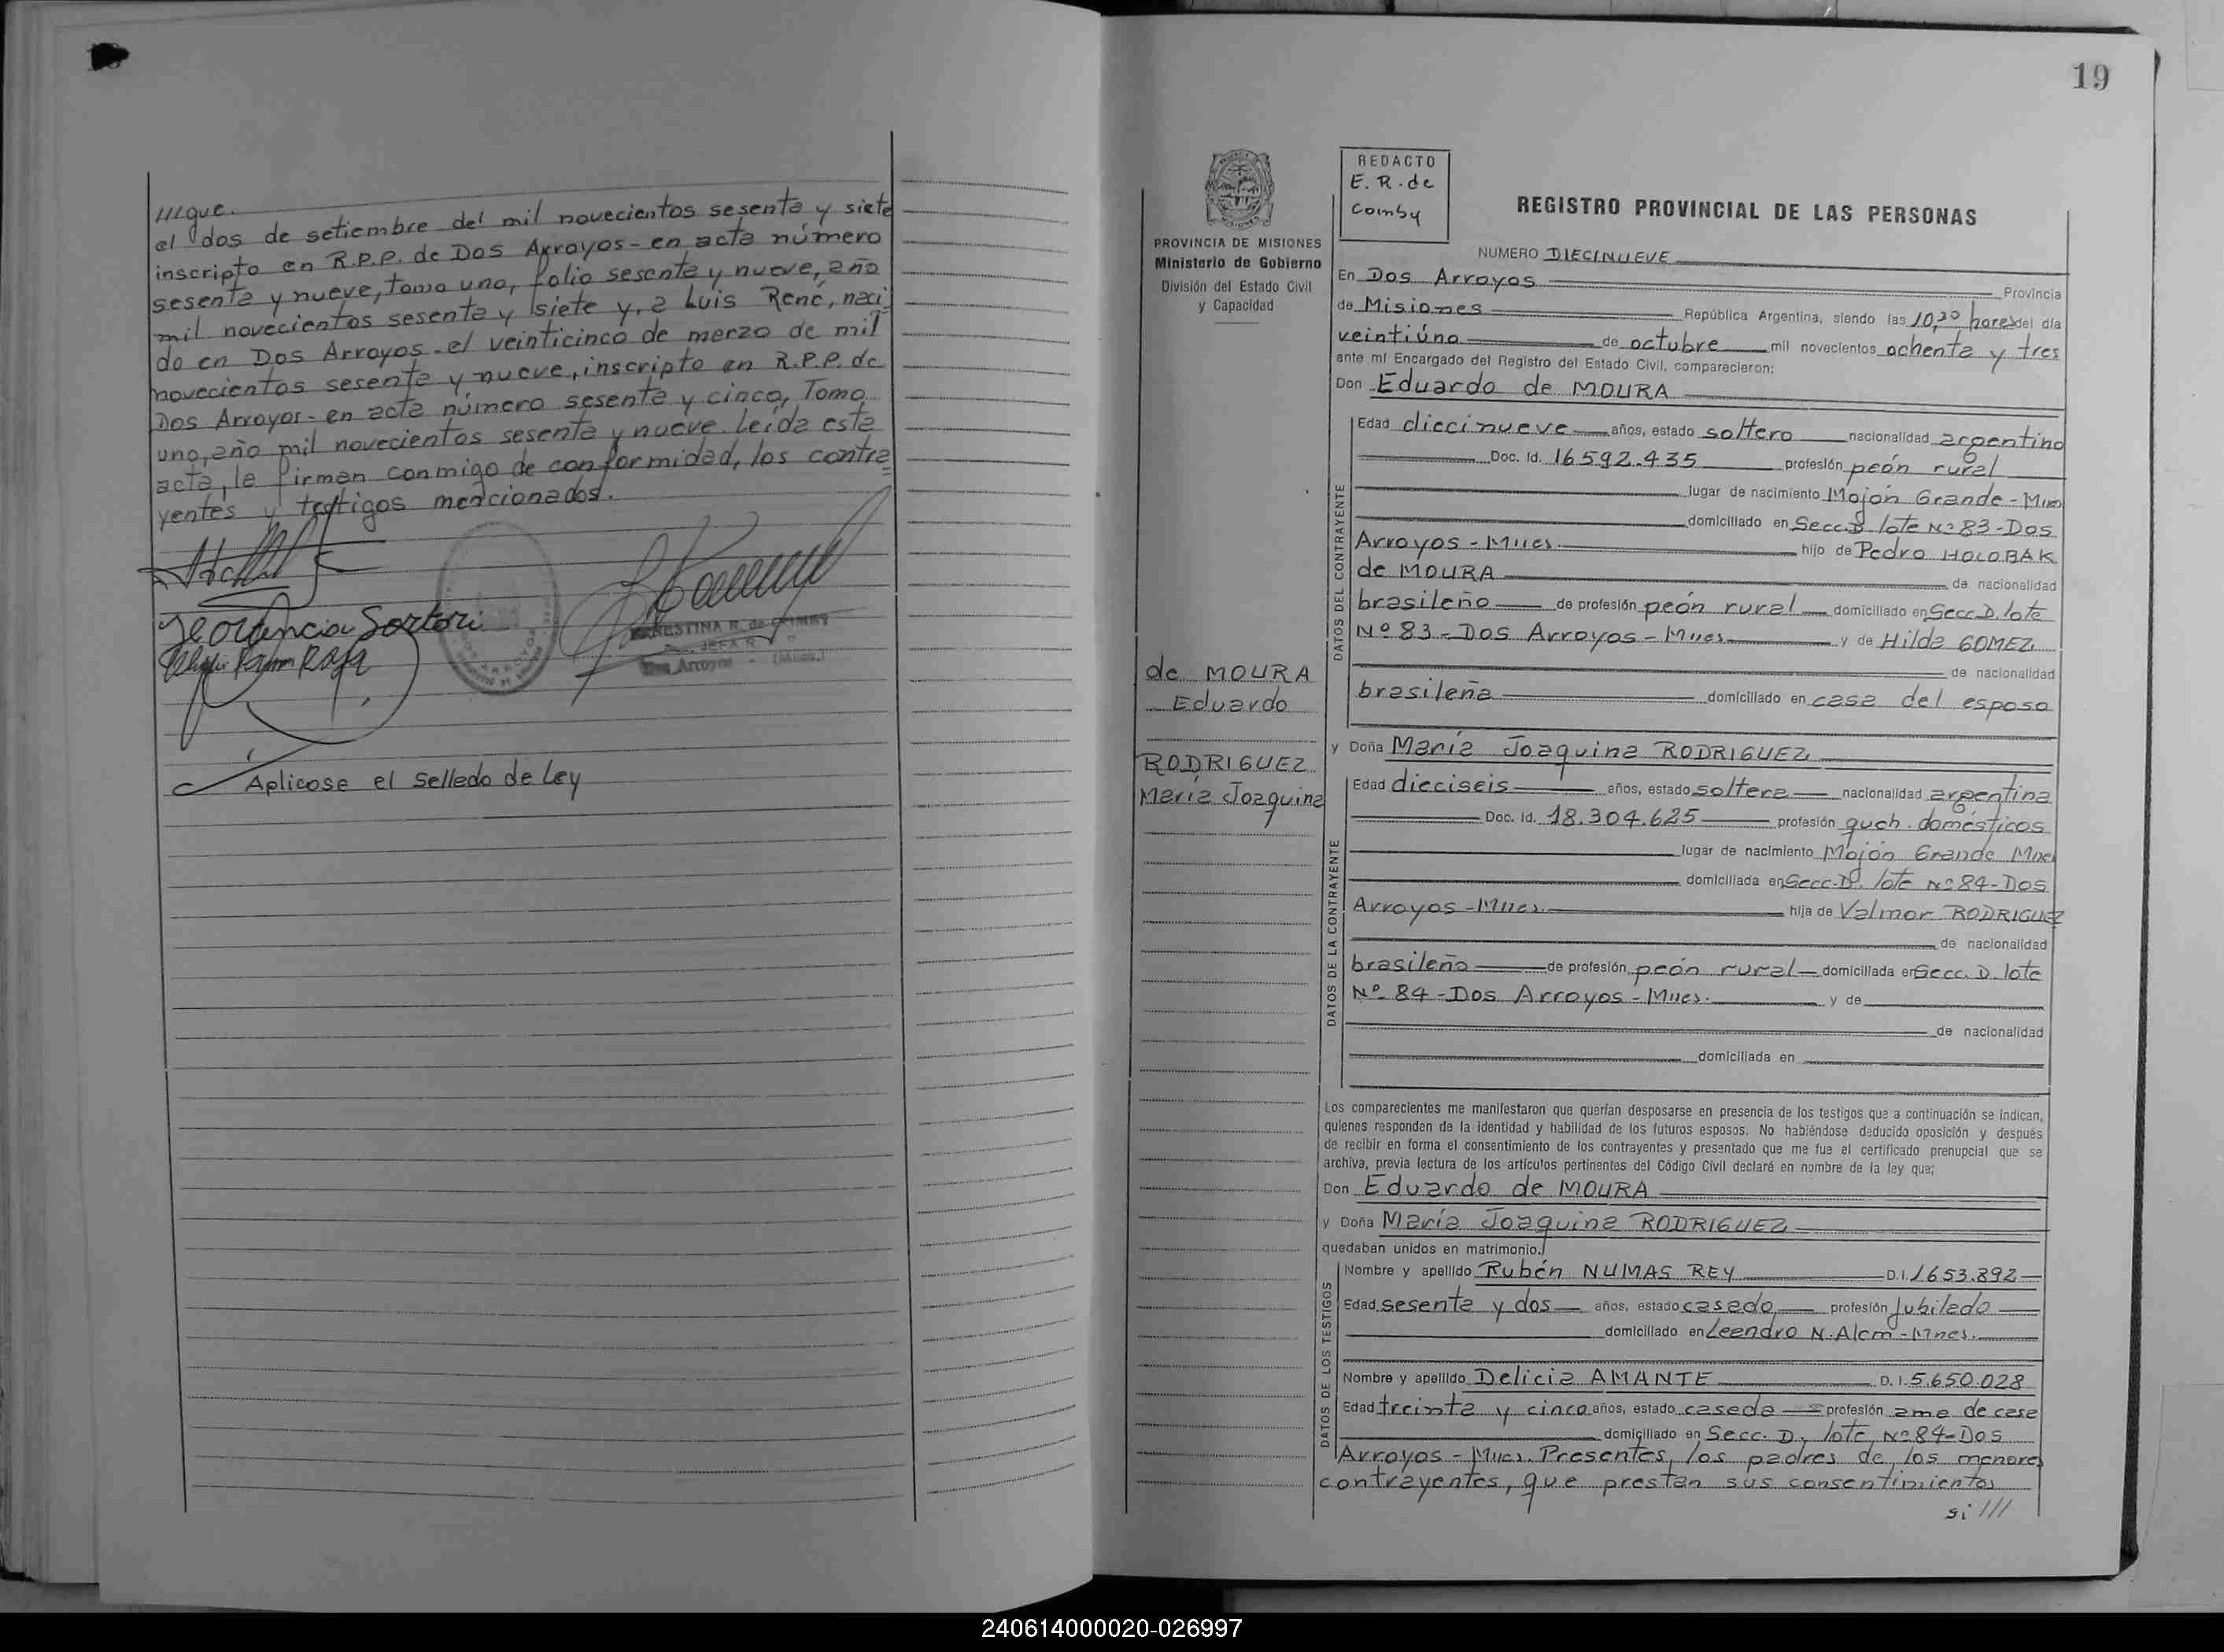 ///gue.
el dos de setiembre del mil novecientos sesenta y siete
inscripto en R.P.P. de Dos Arroyos - en acta número
sesenta y nueve, tomo uno, folio sesenta y nueve, año
mil novecientos sesenta y siete y, a Luis René, naci-
do en Dos Arroyos - el veinticinco de marzo de mil
novecientos sesenta y nueve, inscripto en R.P.P. de
Dos Arroyos - en acta número sesenta y cinco, Tomo
uno, año mil novecientos sesenta y nueve. Leída esta
acta, la firman conmigo de conformidad, los contra
yentes y testigos mencionados.
Sartori
ERNESTINA R. de COIMBY
JEFA R.
Dos Arroyos - (Mnes.)
Aplicose el Sellado de Ley
19
PROVINCIA DE MISIONES
Ministerio de Gobierno
División del Estado Civil
y Capacidad
REDACTO
E. R. de
Coimby
REGISTRO PROVINCIAL DE LAS PERSONAS
NUMERO DIECINUEVE
En Dos Arroyos Provincia
de Misiones República Argentina, siendo las 10,30 horas del día
veintiúno de octubre mil novecientos ochenta y tres
ante mí Encargado del Registro del Estado Civil, comparecieron:
Don Eduardo de MOURA
DATOS DEL CONTRAYENTE
Edad diecinueve años, estado soltero nacionalidad argentino
Doc. Id. 16592.435 profesión peón rural
lugar de nacimiento Mojón Grande - Mnes
domiciliado en Secc. D lote Nº 83 - Dos
Arroyos - Mnes. hijo de Pedro HOLOBAK
de MOURA de nacionalidad
brasileño de profesión peón rural domiciliado en Secc. D. lote
Nº 83 - Dos Arroyos - Mnes y de Hilda GOMEZ
de nacionalidad
brasileña domiciliado en casa del esposo
de MOURA
Eduardo
RODRIGUEZ
María Joaquina
y Doña María Joaquina RODRIGUEZ
DATOS DE LA CONTRAYENTE
Edad dieciseis años, estado soltera nacionalidad argentina
Doc. Id. 18.304.625 profesión queh. domésticos
lugar de nacimiento Mojón Grande Mnes
domiciliada en Secc. D. lote Nº 84 - Dos
Arroyos - Mnes. hija de Valmor RODRIGUEZ
de nacionalidad
brasileño de profesión peón rural domiciliada en Secc. D. lote
Nº 84 - Dos Arroyos - Mnes. y de
de nacionalidad
domiciliada en
Los comparecientes me manifestaron que querían desposarse en presencia de los testigos que a continuación se indican,
quienes responden de la identidad y habilidad de los futuros esposos. No habiéndose deducido oposición y después
de recibir en forma el consentimiento de los contrayentes y presentado que me fue el certificado prenupcial que se
archiva, previa lectura de los artículos pertinentes del Código Civil declaré en nombre de la ley que;
Don Eduardo de MOURA
y Doña María Joaquina RODRIGUEZ
quedaban unidos en matrimonio.
DATOS DE LOS TESTIGOS
Nombre y apellido Rubén NUMAS REY D.I. 1653.892
Edad sesenta y dos años, estado casado profesión jubilado
domiciliado en Leandro N. Alem - Mnes.
Nombre y apellido Delicia AMANTE D.I. 5.650.028
Edad treinta y cinco años, estado casada profesión ama de casa
domiciliado en Secc. D. lote Nº 84 - Dos
Arroyos - Mnes. Presentes, los padres de los menores
contrayentes, que prestan sus consentimientos
si ///
240614000020-026997